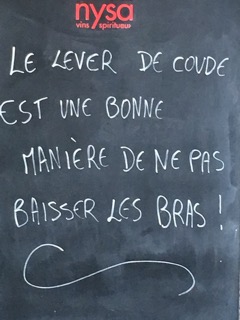 nysa
vins spiritueux
LE LEVER DE COUDE
EST UNE BONNE
MANIÈRE DE NE PAS
BAISSER LES BRAS !